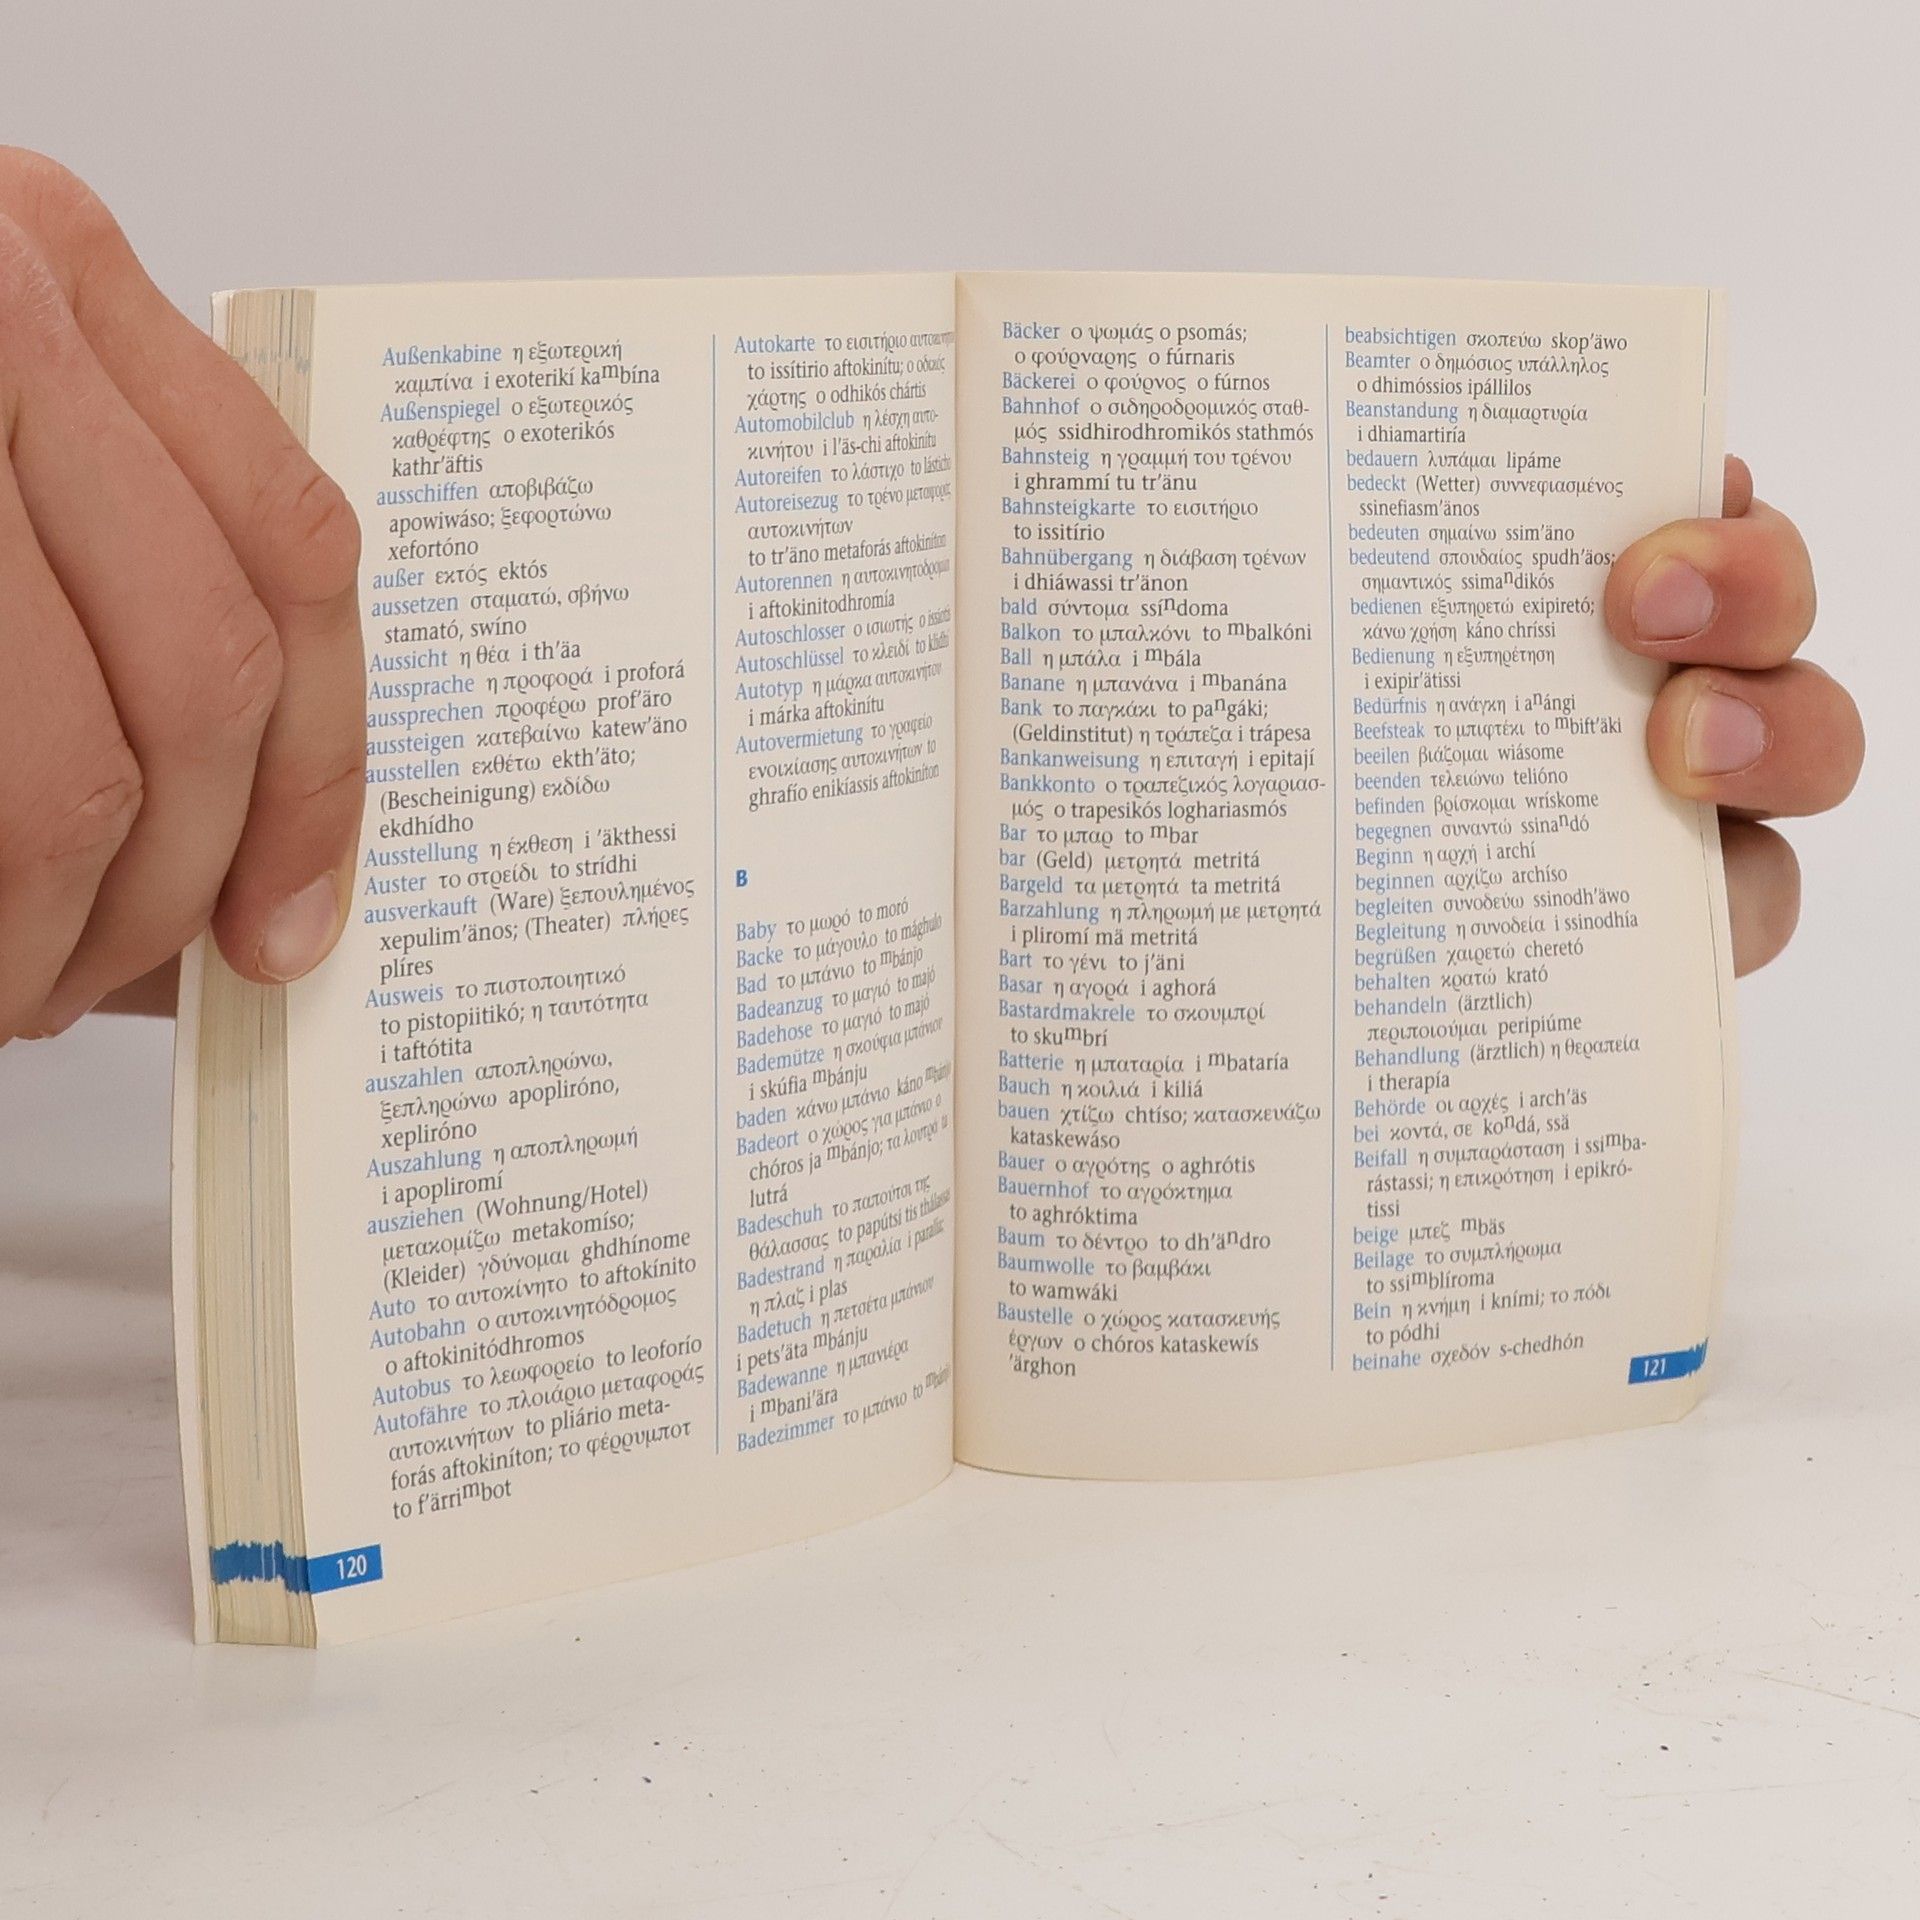 Außenkabine η εξωτερική
καμπίνα i exoterikí kaᵐbína
Außenspiegel ο εξωτερικός
καθρέφτης o exoterikós
kathr'äftis
ausschiffen αποβιβάζω
apowiwáso; ξεφορτώνω
xefortóno
außer εκτός ektós
aussetzen σταματώ, σβήνω
stamató, swíno
Aussicht η θέα i th'äa
Aussprache η προφορά i proforá
aussprechen προφέρω prof'äro
aussteigen κατεβαίνω katew'äno
ausstellen εκθέτω ekth'äto;
(Bescheinigung) εκδίδω
ekdhídho
Ausstellung η έκθεση i 'äkthessi
Auster το στρείδι to strídhi
ausverkauft (Ware) ξεπουλημένος
xepulim'änos; (Theater) πλήρες
plíres
Ausweis το πιστοποιητικό
to pistopiitikó; η ταυτότητα
i taftótita
auszahlen αποπληρώνω,
ξεπληρώνω apopliróno,
xepliróno
Auszahlung η αποπληρωμή
i apopliromí
ausziehen (Wohnung/Hotel)
μετακομίζω metakomíso;
(Kleider) γδύνομαι ghdhínome
Auto το αυτοκίνητο to aftokínito
Autobahn ο αυτοκινητόδρομος
o aftokinitódhromos
Autobus το λεωφορείο to leoforío
Autofähre το πλοιάριο μεταφοράς
αυτοκινήτων to pliário meta-
forás aftokiníton; το φέρρυμποτ
to f'ärriᵐbot
120
Autokarte το εισιτήριο αυτοκινήτου
to issitírio aftokinítu; ο οδικός
χάρτης o odhikós chártis
Automobilclub η λέσχη αυτο-
κινήτου i l'äs-chi aftokinítu
Autoreifen το λάστιχο to lásticho
Autoreisezug το τρένο μεταφοράς
αυτοκινήτων
to tr'äno metaforás aftokiníton
Autorennen η αυτοκινητοδρομία
i aftokinitodhromía
Autoschlosser ο ισιωτής o issiotís
Autoschlüssel το κλειδί to klidhí
Autotyp η μάρκα αυτοκινήτου
i márka aftokinítu
Autovermietung το γραφείο
ενοικίασης αυτοκινήτων to
ghrafío enikíassis aftokiníton
B
Baby το μωρό to moró
Backe το μάγουλο to mághulo
Bad το μπάνιο to ᵐbánjo
Badeanzug το μαγιό to majó
Badehose το μαγιό to majó
Bademütze η σκούφια μπάνιου
i skúfia ᵐbánju
baden κάνω μπάνιο káno ᵐbánjo
Badeort ο χώρος για μπάνιο o
chóros ja ᵐbánjo; τα λουτρά ta
lutrá
Badeschuh το παπούτσι της
θάλασσας to papútsi tis thálassas
Badestrand η παραλία i paralía;
η πλαζ i plas
Badetuch η πετσέτα μπάνιου
i pets'äta ᵐbánju
Badewanne η μπανιέρα
i ᵐbani'ära
Badezimmer το μπάνιο to ᵐbánjo
Bäcker ο ψωμάς o psomás;
ο φούρναρης o fúrnaris
Bäckerei ο φούρνος o fúrnos
Bahnhof ο σιδηροδρομικός σταθ-
μός ssidhirodhromikós stathmós
Bahnsteig η γραμμή του τρένου
i ghrammí tu tr'änu
Bahnsteigkarte το εισιτήριο
to issitírio
Bahnübergang η διάβαση τρένων
i dhiáwassi tr'änon
bald σύντομα ssíⁿdoma
Balkon το μπαλκόνι to ᵐbalkóni
Ball η μπάλα i ᵐbála
Banane η μπανάνα i ᵐbanána
Bank το παγκάκι to paⁿgáki;
(Geldinstitut) η τράπεζα i trápesa
Bankanweisung η επιταγή i epitají
Bankkonto ο τραπεζικός λογαριασ-
μός o trapesikós loghariasmós
Bar το μπαρ to ᵐbar
bar (Geld) μετρητά metritá
Bargeld τα μετρητά ta metritá
Barzahlung η πληρωμή με μετρητά
i pliromí mä metritá
Bart το γένι to j'äni
Basar η αγορά i aghorá
Bastardmakrele το σκουμπρί
to skuᵐbrí
Batterie η μπαταρία i ᵐbataría
Bauch η κοιλιά i kiliá
bauen χτίζω chtíso; κατασκευάζω
kataskewáso
Bauer ο αγρότης o aghrótis
Bauernhof το αγρόκτημα
to aghróktima
Baum το δέντρο to dh'äⁿdro
Baumwolle το βαμβάκι
to wamwáki
Baustelle ο χώρος κατασκευής
έργων o chóros kataskewís
'ärghon
beabsichtigen σκοπεύω skop'äwo
Beamter ο δημόσιος υπάλληλος
o dhimóssios ipállilos
Beanstandung η διαμαρτυρία
i dhiamartiría
bedauern λυπάμαι lipáme
bedeckt (Wetter) συννεφιασμένος
ssinefiasm'änos
bedeuten σημαίνω ssim'äno
bedeutend σπουδαίος spudh'äos;
σημαντικός ssimaⁿdikós
bedienen εξυπηρετώ exipiretó;
κάνω χρήση káno chríssi
Bedienung η εξυπηρέτηση
i exipir'ätissi
Bedürfnis η ανάγκη i aⁿángi
Beefsteak το μπιφτέκι to ᵐbift'äki
beeilen βιάζομαι wiásome
beenden τελειώνω telióno
befinden βρίσκομαι wrískome
begegnen συναντώ ssinaⁿdó
Beginn η αρχή i archí
beginnen αρχίζω archíso
begleiten συνοδεύω ssinodh'äwo
Begleitung η συνοδεία i ssinodhía
begrüßen χαιρετώ cheretó
behalten κρατώ krató
behandeln (ärztlich)
περιποιούμαι peripiúme
Behandlung (ärztlich) η θεραπεία
i therapía
Behörde οι αρχές i arch'äs
bei κοντά, σε koⁿdá, ssä
Beifall η συμπαράσταση i ssiᵐba-
rástassi; η επικρότηση i epikró-
tissi
beige μπεζ ᵐbäs
Beilage το συμπλήρωμα
to ssiᵐblíroma
Bein η κνήμη i kními; το πόδι
to pódhi
beinahe σχεδόν s-chedhón
121